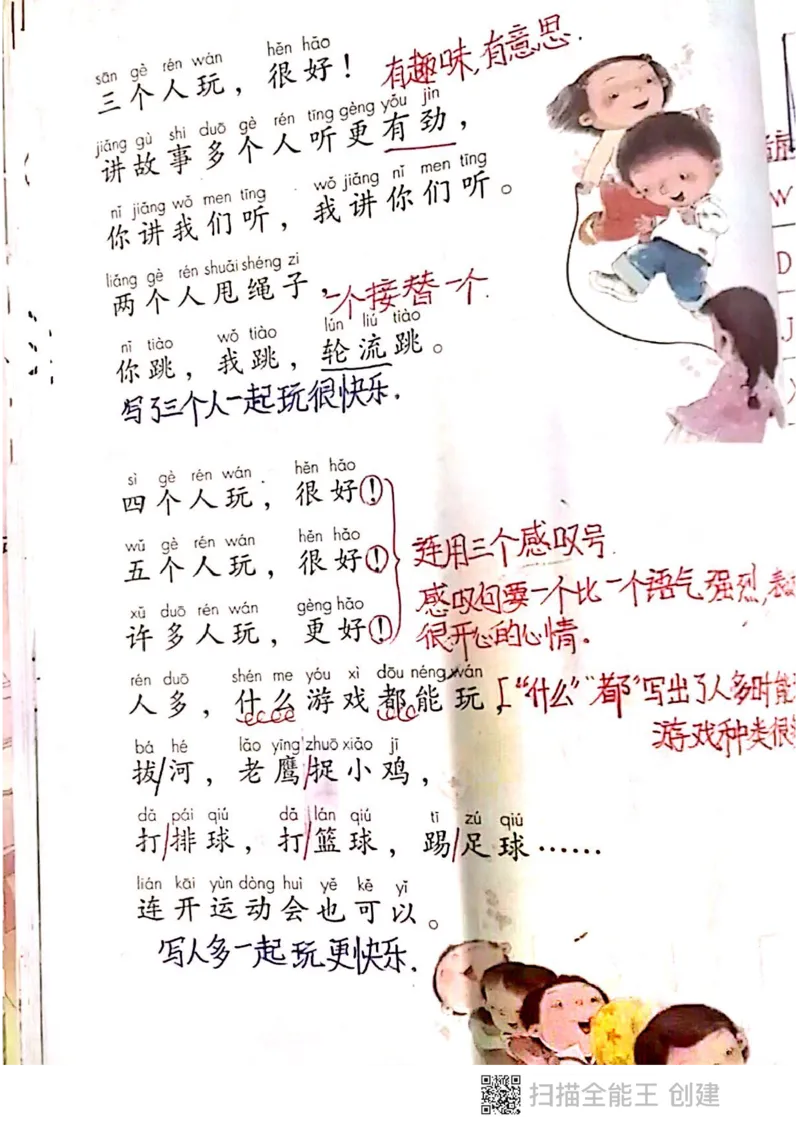 sān gè rén wán hěn hǎo
三个人玩，很好！ 有趣味，有意思．
jiǎng gù shi duō gè rén tīng gèng yǒu jìn
讲故事多个人听更有劲，
nǐ jiǎng wǒ men tīng wǒ jiǎng nǐ men tīng
你讲我们听，我讲你们听。
liǎng gè rén shuǎi shéng zi
两个人甩绳子， 一个接替一个．
nǐ tiào wǒ tiào lún liú tiào
你跳，我跳，轮流跳。
写了三个人一起玩很快乐．
sì gè rén wán hěn hǎo
四个人玩，很好！
wǔ gè rén wán hěn hǎo
五个人玩，很好！ 连用三个感叹号．
感叹句要一个比一个语气强烈，表
xǔ duō rén wán gèng hǎo
许多人玩，更好！ 很开心的心情。
rén duō shén me yóu xì dōu néng wán
人多，什么游戏都能玩， “什么”“都”写出了人多时能
游戏种类很
bá hé lǎo yīng zhuō xiǎo jī
拔河，老鹰捉小鸡，
dǎ pái qiú dǎ lán qiú tī zú qiú
打排球，打篮球，踢足球……
lián kāi yùn dòng huì yě kě yǐ
连开运动会也可以。
写人多一起玩更快乐．
扫描全能王 创建